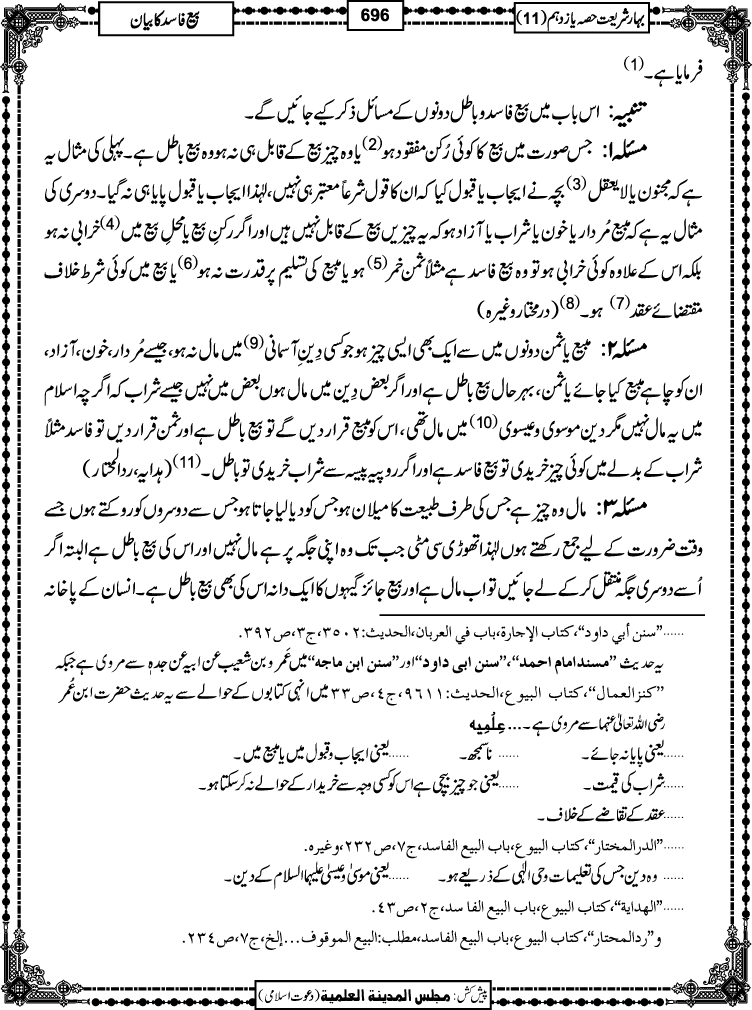 بہارِ شریعت حصہ یازدہم (11)
696
بیع فاسد کا بیان
فرمایا ہے۔(1)
تنبیہ: اس باب میں بیع فاسد و باطل دونوں کے مسائل ذکر کیے جائیں گے۔
مسئلہ ۱: جس صورت میں بیع کا کوئی رُکن مفقود ہو(2) یا وہ چیز بیع کے قابل ہی نہ ہو وہ بیع باطل ہے۔ پہلی کی مثال یہ
ہے کہ مجنون یا لا یعقل(3) بچہ نے ایجاب یا قبول کیا کہ ان کا قول شرعاً معتبر ہی نہیں، لہٰذا ایجاب یا قبول پایا ہی نہ گیا۔ دوسری کی
مثال یہ ہے کہ مبیع مُردار یا خون یا شراب یا آزاد ہو کہ یہ چیزیں بیع کے قابل نہیں ہیں اور اگر رکنِ بیع یا محلِ بیع میں(4) خرابی نہ ہو
بلکہ اس کے علاوہ کوئی خرابی ہو تو وہ بیع فاسد ہے مثلاً ثمن خمر(5) ہو یا مبیع کی تسلیم پر قدرت نہ ہو(6) یا بیع میں کوئی شرط خلاف
مقتضائے عقد(7) ہو۔(8) (درمختار وغیرہ)
مسئلہ ۲: مبیع یا ثمن دونوں میں سے ایک بھی ایسی چیز ہو جو کسی دینِ آسمانی(9) میں مال نہ ہو، جیسے مُردار، خون، آزاد،
ان کو چاہے مبیع کیا جائے یا ثمن، بہر حال بیع باطل ہے اور اگر بعض دِین میں مال ہوں بعض میں نہیں جیسے شراب کہ اگرچہ اسلام
میں یہ مال نہیں مگر دین موسوی و عیسوی(10) میں مال تھی، اس کو مبیع قرار دیں گے تو بیع باطل ہے اور ثمن قرار دیں تو فاسد مثلاً
شراب کے بدلے میں کوئی چیز خریدی تو بیع فاسد ہے اور اگر روپیہ پیسہ سے شراب خریدی تو باطل۔(11) (ہدایہ، ردالمحتار)
مسئلہ ۳: مال وہ چیز ہے جس کی طرف طبیعت کا میلان ہو جس کو دیا لیا جاتا ہو جس سے دوسروں کو روکتے ہوں جسے
وقت ضرورت کے لیے جمع رکھتے ہوں لہٰذا تھوڑی سی مٹی جب تک وہ اپنی جگہ پر ہے مال نہیں اور اس کی بیع باطل ہے البتہ اگر
اُسے دوسری جگہ منتقل کر کے لے جائیں تو اب مال ہے اور بیع جائز گیہوں کا ایک دانہ اس کی بھی بیع باطل ہے۔ انسان کے پاخانہ
......"سنن أبي داود"، كتاب الإجارة، باب في العربان، الحديث:٣٥٠٢، ج٣، ص٣٩٢.
یہ حدیث "مسند امام احمد"، "سنن ابی داود" اور "سنن ابن ماجہ" میں عَمر و بن شعیب عن ابیہ عن جدہٖ سے مروی ہے جبکہ
"کنز العمال"، كتاب البيوع، الحديث:٩٦١١، ج٤، ص٣٣ میں انہی کتابوں کے حوالے سے یہ حدیث حضرت ابن عُمر
رضی اللہ تعالٰی عنہما سے مروی ہے۔... عِلْمِیہ
......یعنی پایا نہ جائے۔ ......ناسمجھ۔ ......یعنی ایجاب و قبول میں یا مبیع میں۔
......شراب کی قیمت۔ ......یعنی جو چیز بیچی ہے اس کو کسی وجہ سے خریدار کے حوالے نہ کر سکتا ہو۔
......عقد کے تقاضے کے خلاف۔
......"الدر المختار"، كتاب البيوع، باب البيع الفاسد، ج٧، ص٢٣٢، وغيره.
......وہ دین جس کی تعلیمات وحی الٰہی کے ذریعے ہو۔ ......یعنی موسیٰ و عیسیٰ علیہما السلام کے دین۔
......"الهداية"، كتاب البيوع، باب البيع الفاسد، ج٢، ص٤٣.
و"ردالمحتار"، كتاب البيوع، باب البيع الفاسد، مطلب: البيع الموقوف...إلخ، ج٧، ص٢٣٤.
پیش کش: مجلس المدینۃ العلمیۃ (دعوت اسلامی)